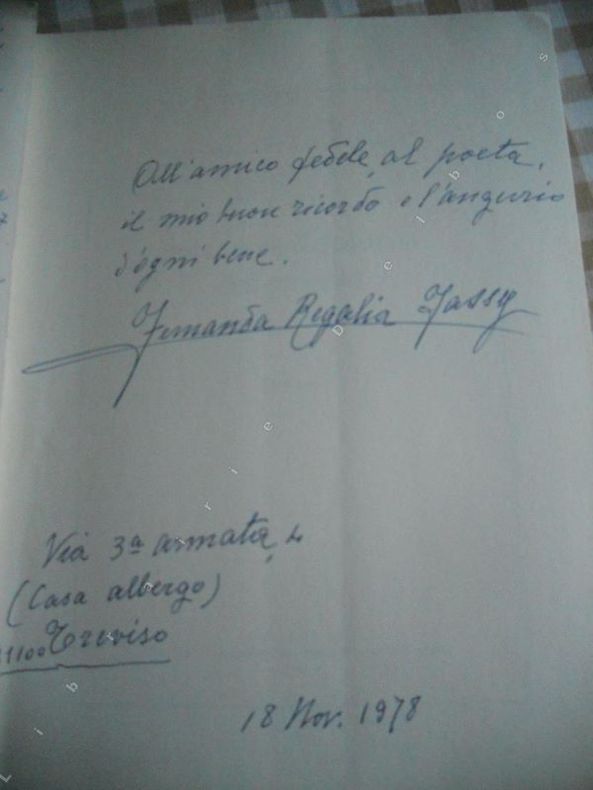 All'amico fedele, al poeta,
il mio buon ricordo e l'augurio
d'ogni bene.
Fernanda Regalia Fassy
Via 3ª armata, 4
(Casa albergo)
31100 Treviso
18 Nov. 1978